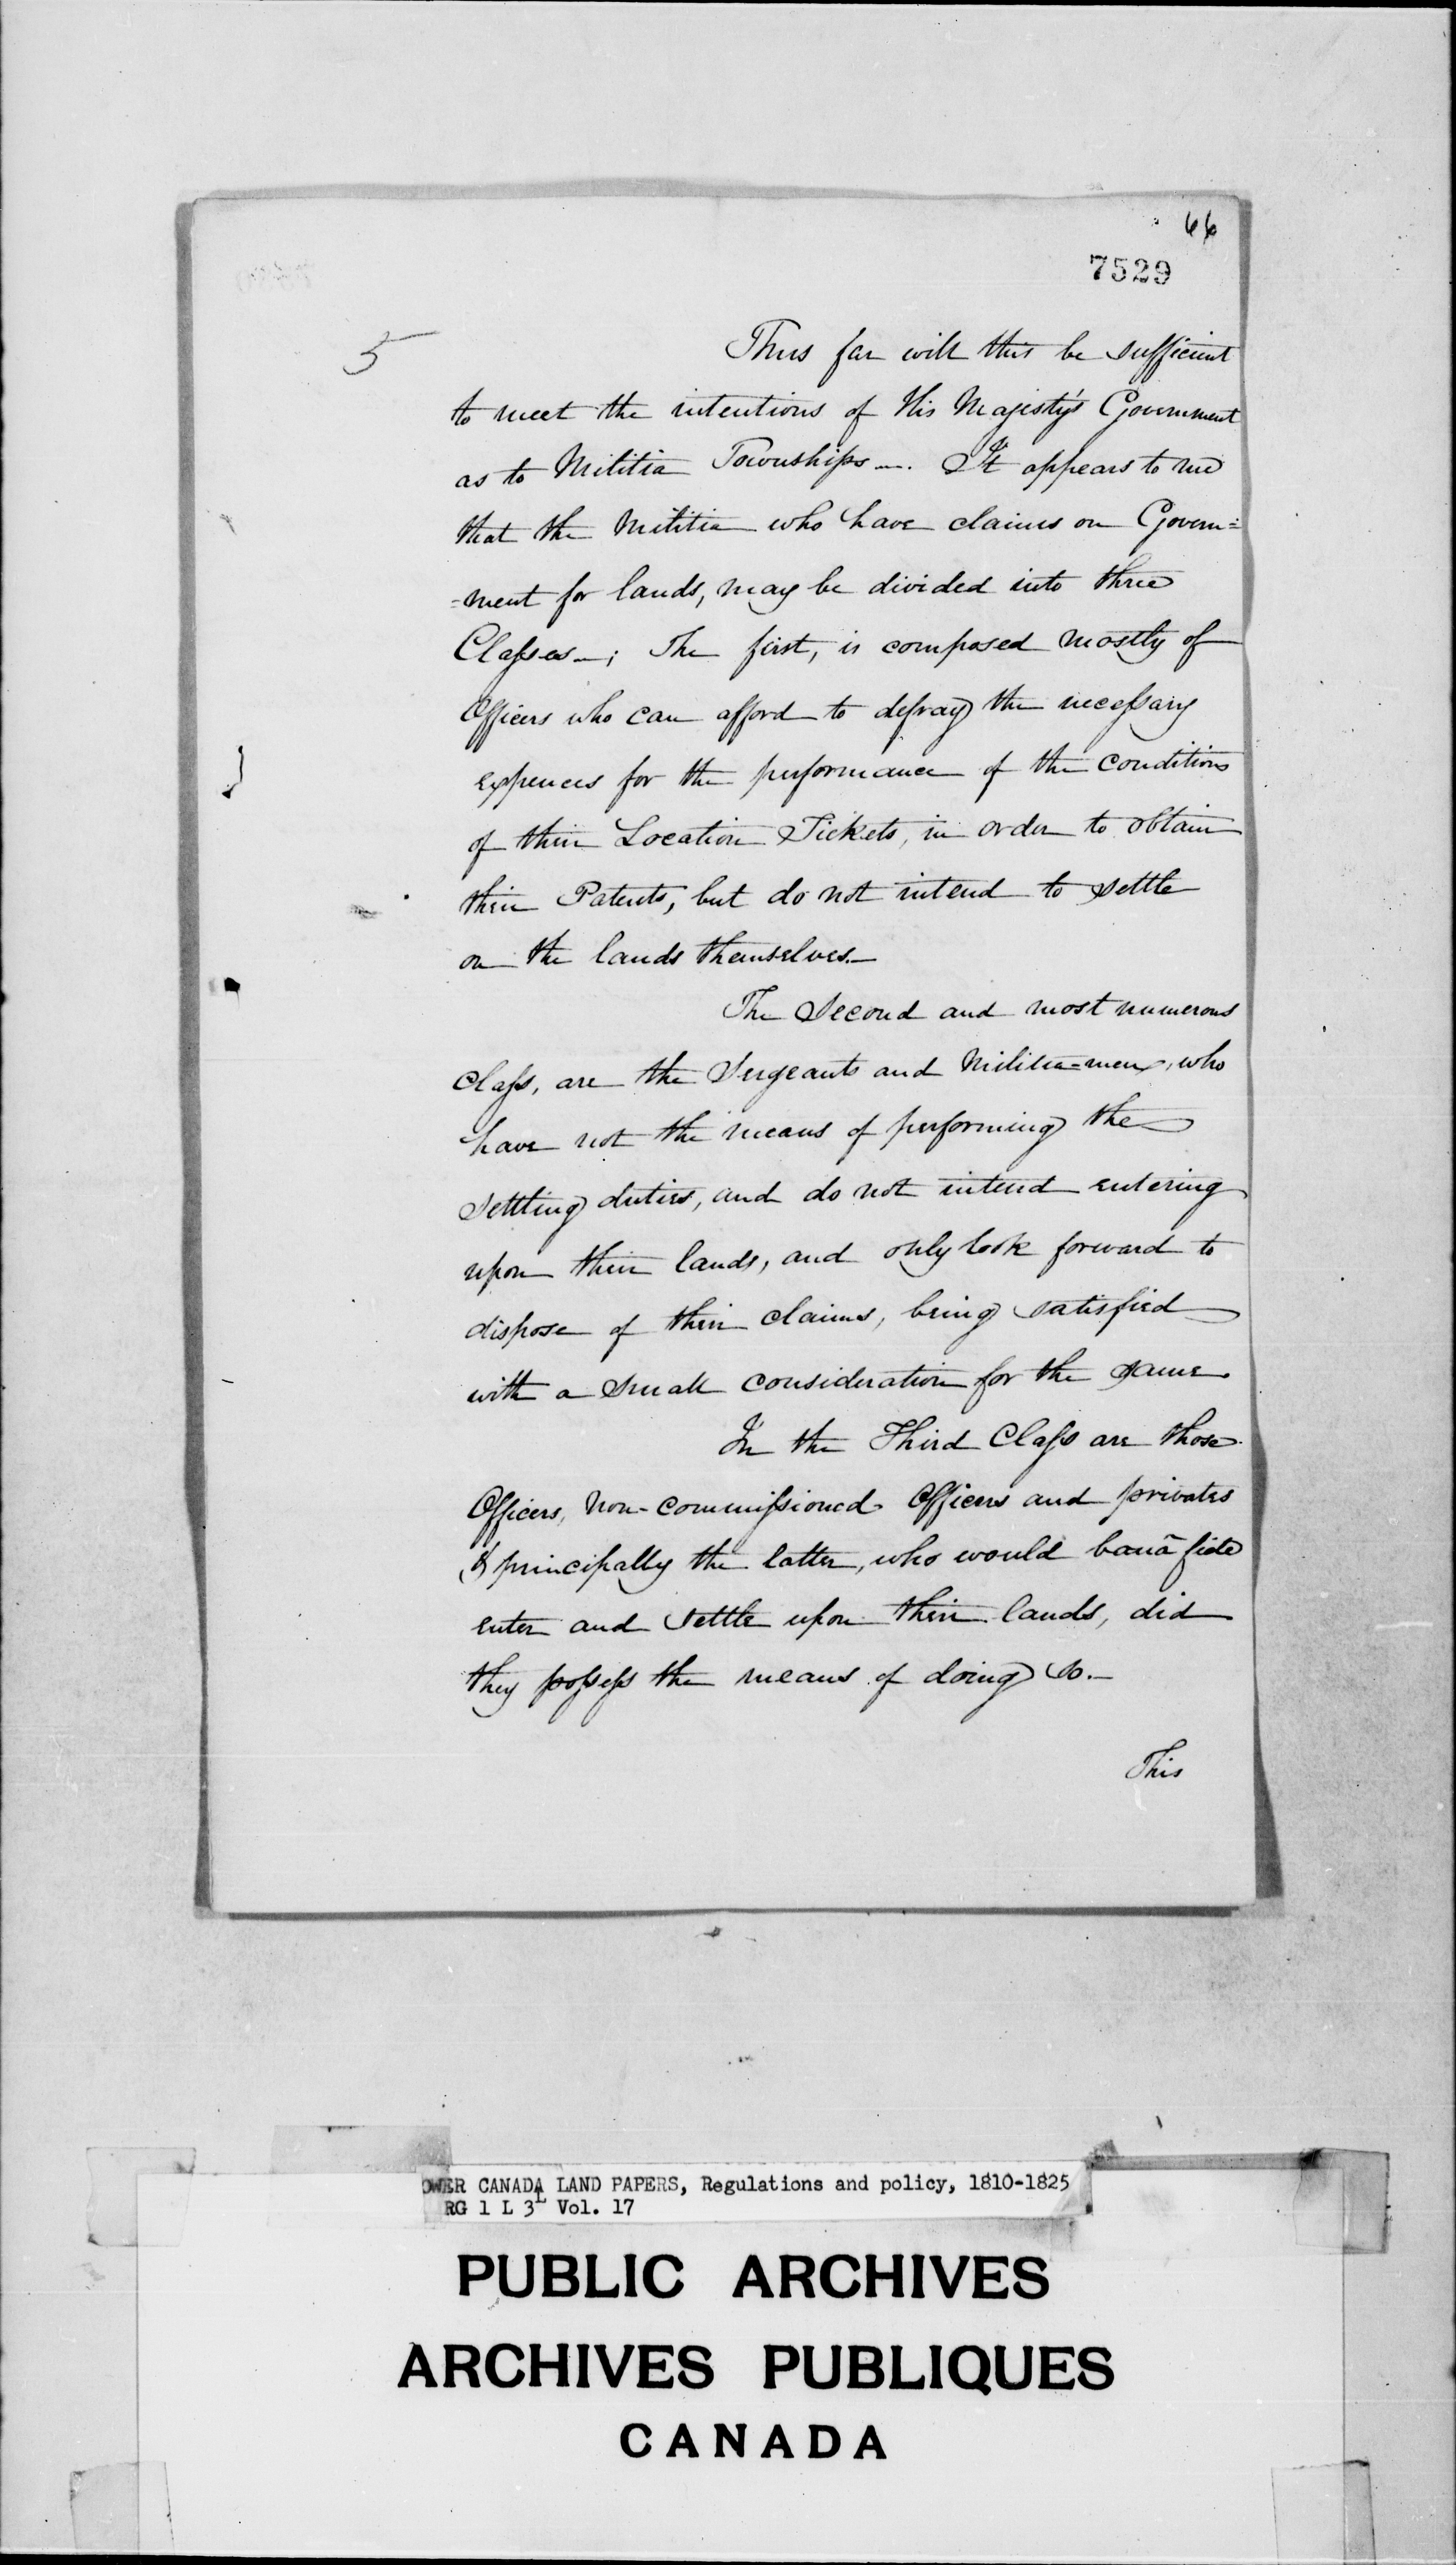 66
7529
5
Thus far will this be sufficient
to meet the intentions of His Majesty's Government
as to Militia Townships —. It appears to me
that the Militia who have claims on Govern=
=ment for lands, may be divided into three
Classes —; The first, is composed mostly of
Officers who can afford to defray the necessary
expences for the performance of the conditions
of their Location Tickets, in order to obtain
their Patents, but do not intend to settle
on the lands themselves.—
The Second and most numerous
class, are the Sergeants and Militia=men, who
have not the means of performing the
Settling duties, and do not intend entering
upon their lands, and only look forward to
dispose of their claims, being satisfied
with a small consideration for the same.
In the Third Class are those
Officers, Non-commissioned Officers and privates
& principally the latter, who would bonâ fide
enter and settle upon their lands, did
they possess the means of doing so.—
This
OWER CANADA LAND PAPERS, Regulations and policy, 1810-1825
RG 1 L 3L Vol. 17
PUBLIC ARCHIVES
ARCHIVES PUBLIQUES
CANADA